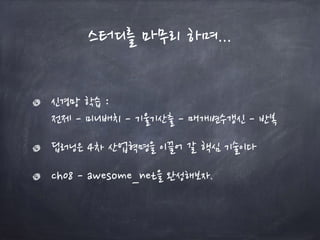 스터디를 마무리 하며...
신경망 학습 :
전제 - 미니배치 - 기울기산출 - 매개변수갱신 - 반복
딥러닝은 4차 산업혁명을 이끌어 갈 핵심 기술이다
ch08 - awesome_net을 완성해보자.